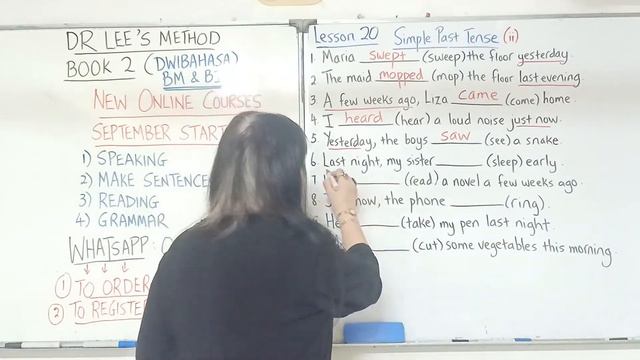 DR LEE'S METHOD
BOOK 2 (DWIBAHASA)
BM & BI
NEW ONLINE COURSES
SEPTEMBER
1) SPEAKING
2) MAKE SENTENCE
3) READING
4) GRAMMAR
WHATSAPP:
① TO ORDER
② TO REGISTER
Lesson 20 Simple Past Tense (ii)
1. Maria swept (sweep) the floor yesterday.
2. The maid mopped (mop) the floor last evening.
3. A few weeks ago, Liza came (come) home.
4. I heard (hear) a loud noise just now.
5. Yesterday, the boys saw (see) a snake.
6. Last night, my sister ______ (sleep) early.
7 ______ (read) a novel a few weeks ago.
8. now, the phone ______ (ring).
He ______ (take) my pen last night.
______ (cut) some vegetables this morning.